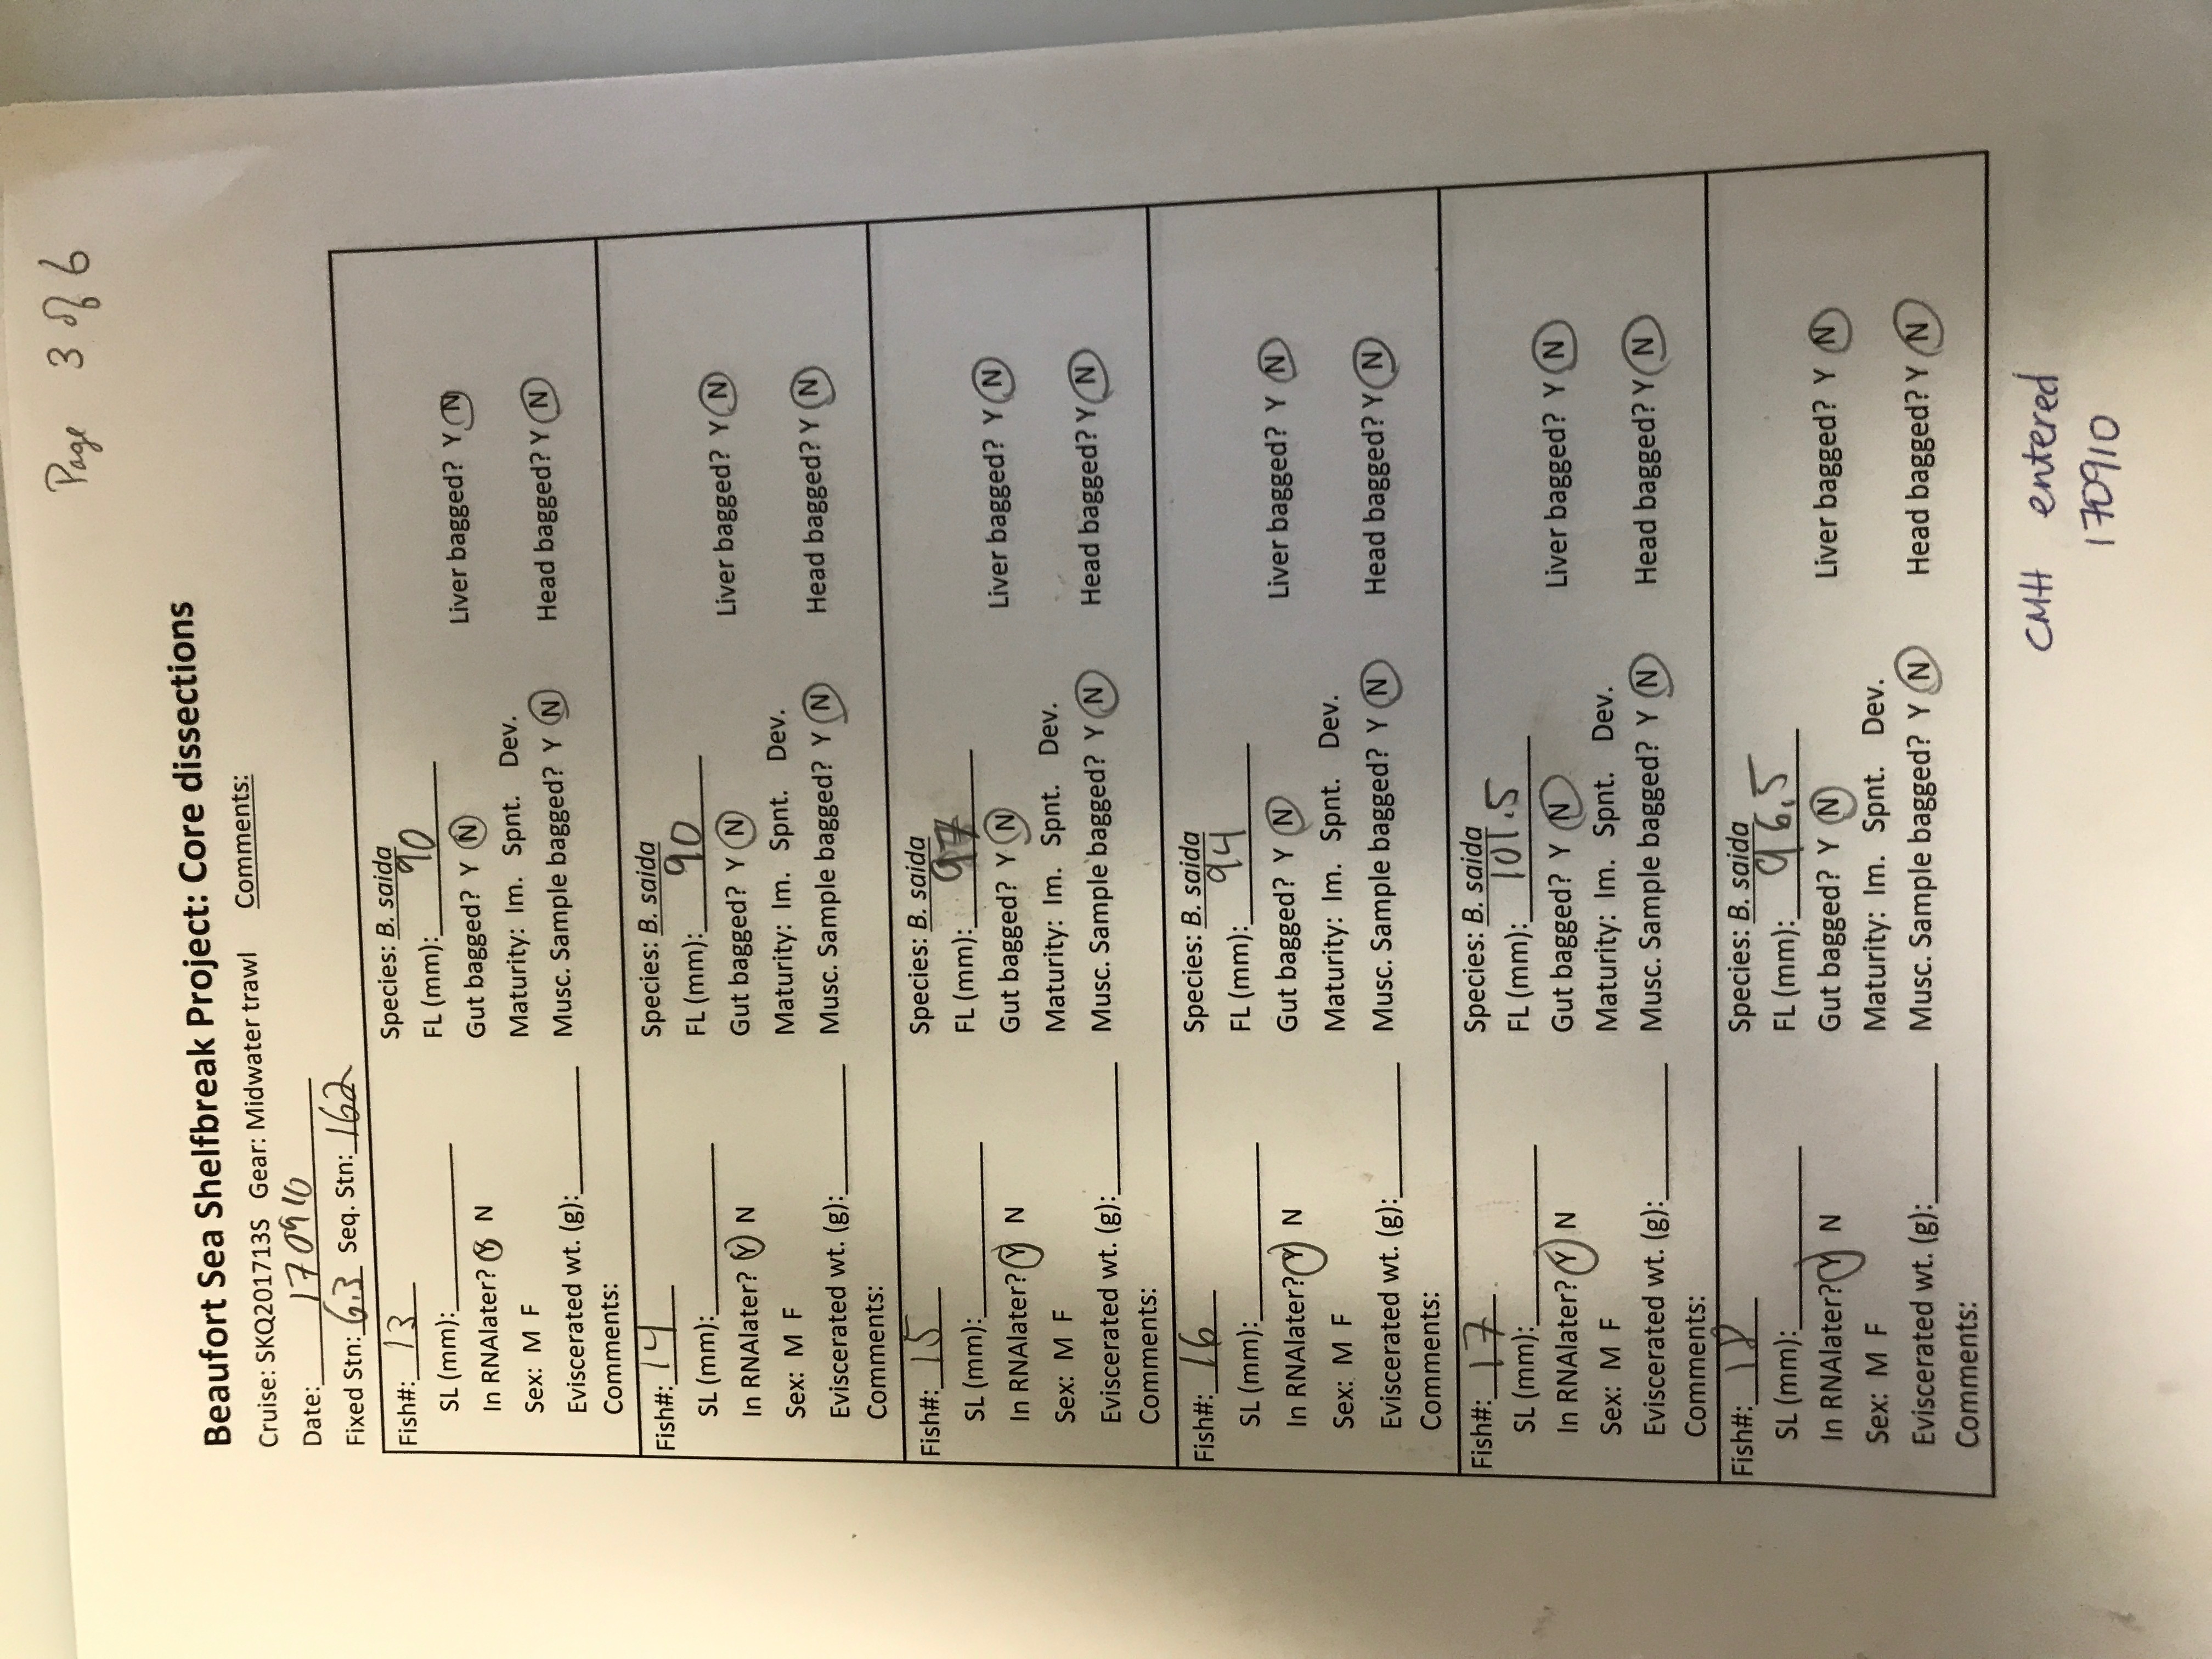 Page 3 of 6
Beaufort Sea Shelfbreak Project: Core dissections
Cruise: SKQ201713S Gear: Midwater trawl Comments:
Date: 170910
Fixed Stn: 6.3 Seq. Stn: 162
Fish#: 13 Species: B. saida
SL (mm): FL (mm): 90
In RNAlater? Y N Gut bagged? Y N Liver bagged? Y N
Sex: M F Maturity: Im. Spnt. Dev.
Eviscerated wt. (g): Musc. Sample bagged? Y N Head bagged? Y N
Comments:
Fish#: 14 Species: B. saida
SL (mm): FL (mm): 90
In RNAlater? Y N Gut bagged? Y N Liver bagged? Y N
Sex: M F Maturity: Im. Spnt. Dev.
Eviscerated wt. (g): Musc. Sample bagged? Y N Head bagged? Y N
Comments:
Fish#: 15 Species: B. saida
SL (mm): FL (mm):
In RNAlater? Y N Gut bagged? Y N Liver bagged? Y N
Sex: M F Maturity: Im. Spnt. Dev.
Eviscerated wt. (g): Musc. Sample bagged? Y N Head bagged? Y N
Comments:
Fish#: 16 Species: B. saida
SL (mm): FL (mm): 94
In RNAlater? Y N Gut bagged? Y N Liver bagged? Y N
Sex: M F Maturity: Im. Spnt. Dev.
Eviscerated wt. (g): Musc. Sample bagged? Y N Head bagged? Y N
Comments:
Fish#: 17 Species: B. saida
SL (mm): FL (mm): 101.5
In RNAlater? Y N Gut bagged? Y N Liver bagged? Y N
Sex: M F Maturity: Im. Spnt. Dev.
Eviscerated wt. (g): Musc. Sample bagged? Y N Head bagged? Y N
Comments:
Fish#: 18 Species: B. saida
SL (mm): FL (mm): 96.5
In RNAlater? Y N Gut bagged? Y N Liver bagged? Y N
Sex: M F Maturity: Im. Spnt. Dev.
Eviscerated wt. (g): Musc. Sample bagged? Y N Head bagged? Y N
Comments:
CMH entered
170910